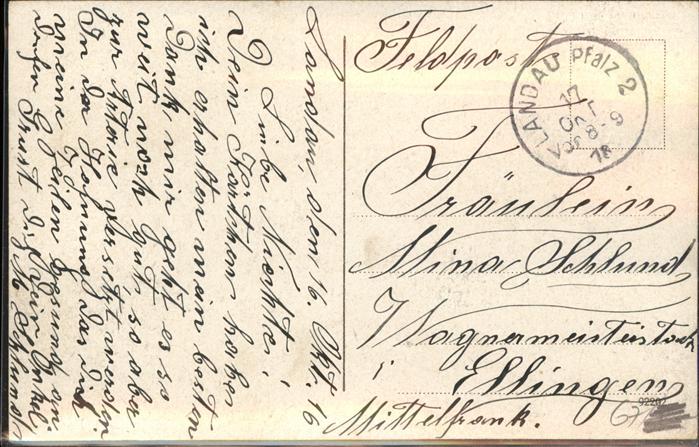 Landau, den 16. Okt. 16
Liebe Nichte!
Dein Kärtchen habe
ich erhalten mein besten
Dank mir geht es so
weit noch gut, so aber
zur versetzt werden.
In der Hofnung das Dich
meine Zeilen Gesund an
Grust Dich Dein Onkel
M Schlund
Feldpost
LANDAU Pfalz 2
17
OKT
Vor 8-9
Fräulein
Mina Schlund
Wagnermeisterstoch
i
Ellingen
Mittelfrank.
92262